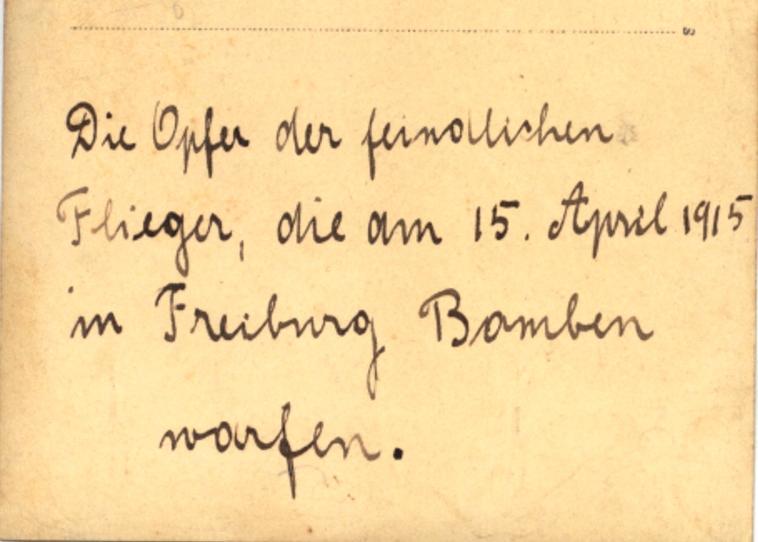 Die Opfer der feindlichen
Flieger, die am 15. April 1915
in Freiburg Bomben
warfen.